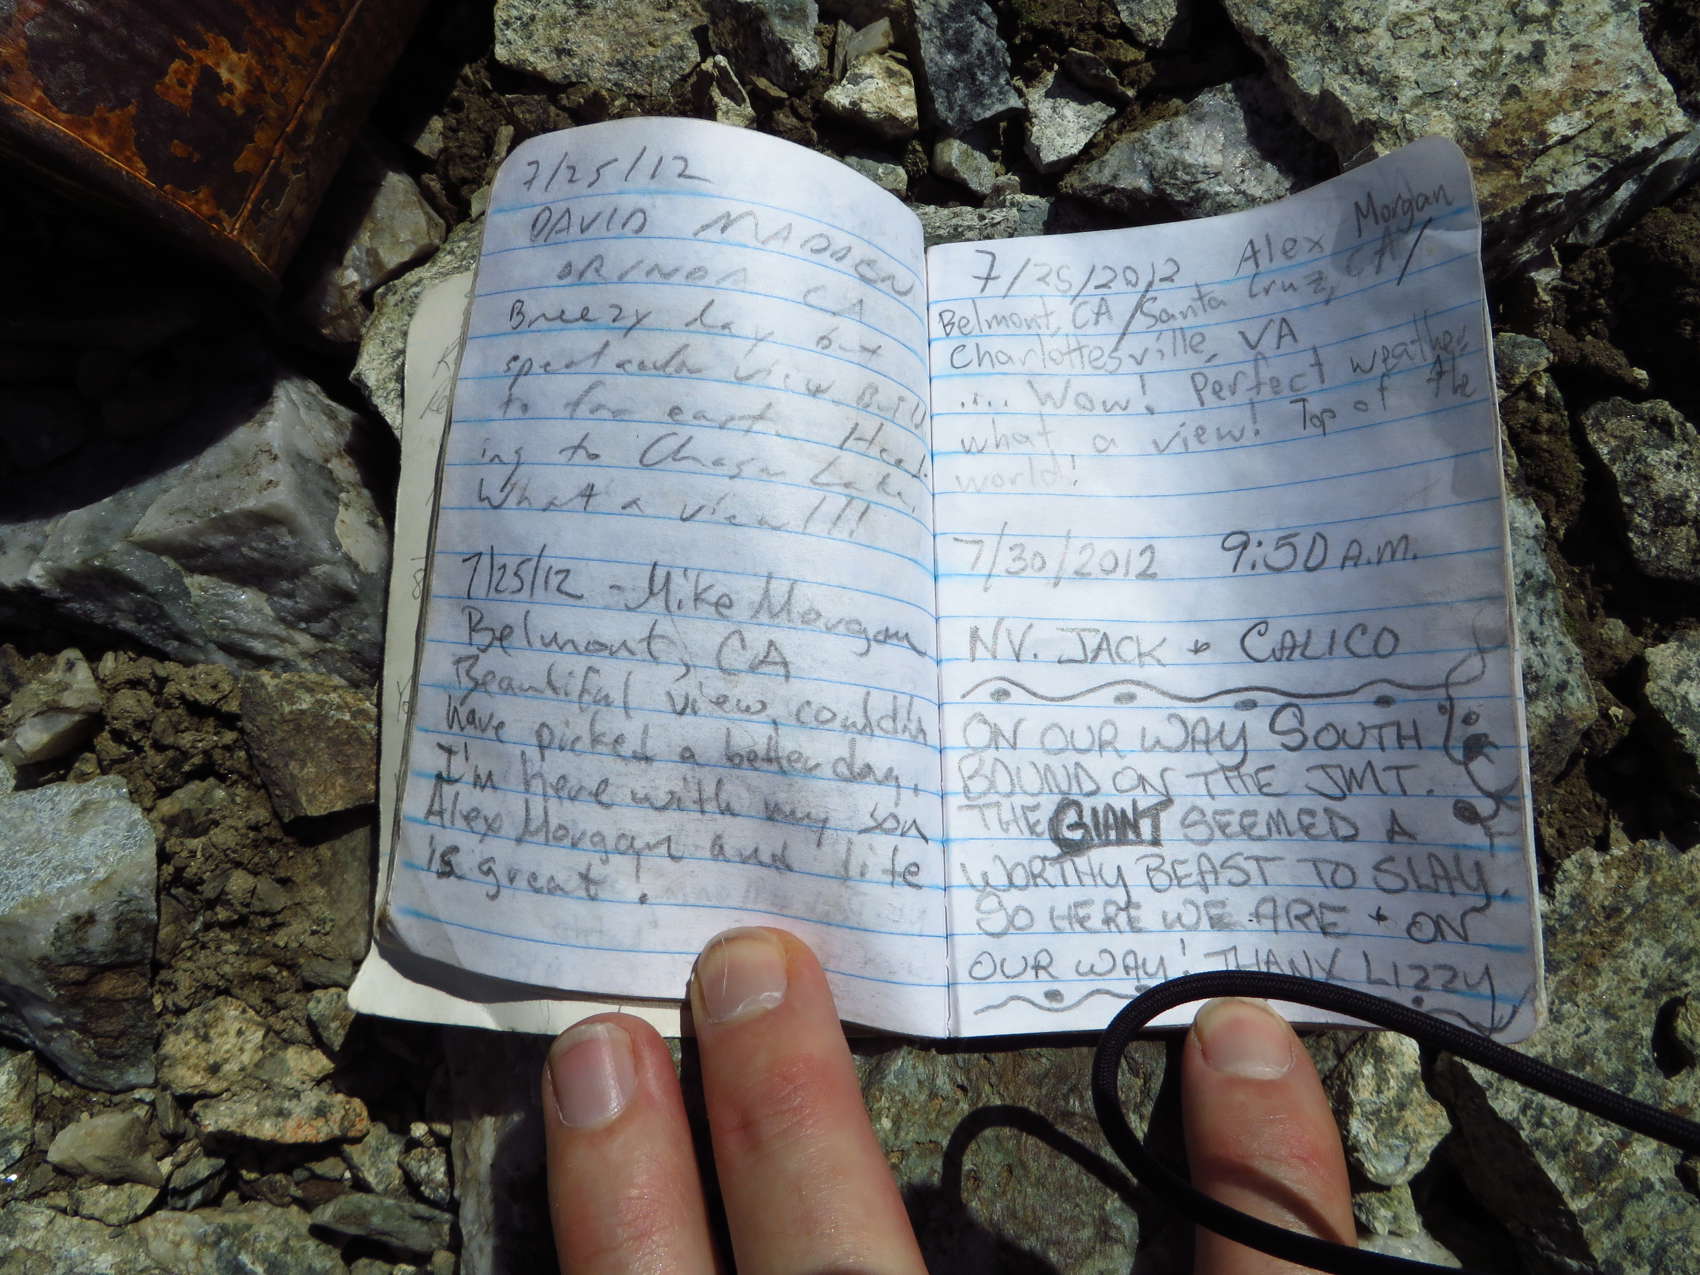 7/25/12
DAVID MADDEN
ORINDA CA
Breezy day but
spectacular view
to far east. Head-
ing to Chasm Lake.
What a view!!!
7/25/12 - Mike Morgan
Belmont, CA
Beautiful view, couldn't
have picked a better day.
I'm here with my son
Alex Morgan and life
is great.
7/25/2012 Alex Morgan
Belmont, CA / Santa Cruz, CA /
Charlottesville, VA
.... Wow! Perfect weather
what a view! Top of the
world!
7/30/2012 9:50 A.M.
NV. JACK + CALICO
ON OUR WAY SOUTH
BOUND ON THE JMT.
THE GIANT SEEMED A
WORTHY BEAST TO SLAY.
SO HERE WE ARE + ON
OUR WAY! THANX LIZZY